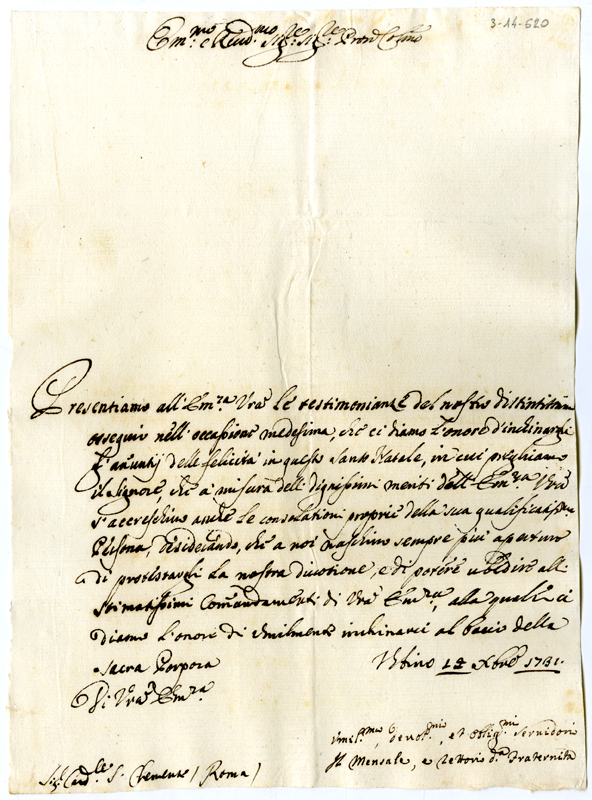 3-14-620
Em.mo e Reud.mo Sig.re Sig.re Pron Col.mo
Presentiamo all'Em.za Vra le testimonianze del nostro distintissimo
ossequio nell'occasione medesima, che ci diamo l'onore d'inchinargli
gl'annuntij delle felicità in questo Santo Natale, in cui preghiamo
il Signore, che à misura delli dignissimi meriti dell'Em.za Vra
s'accreschino anche le consolationi proprie della sua qualificatiss.ma
Persona, desiderando, che a noi naschino sempre più aperture
di protestargli la nostra divotione, e di potere ubedire alli
stimatissimi Comandamenti di Vra Em.za, alla quale ci
diamo l'onore di umilmente inchinarci al bacio della
sacra Porpora
Di Vra Em.za
Urbino 14 Xbre 1731.
Umil.mi devot.mi, et oblig.mi Servidori
Il Mensale, e Rettori d.a Fraternita
Sig. Card.le S. Clemente (Roma)